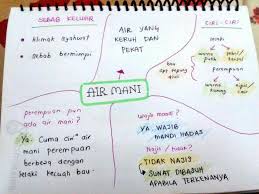 SEBAB KELUAR
• Nikmat syahwat
• Sebab bermimpi
AIR YANG
KERUH DAN
PEKAT
CIRI-CIRI
warna
putih
bau
perempuan
warna
kuning
AIR MANI
perempuan pun
ada air mani?
Ya. Cuma ciri² air
mani perempuan
berbeza dengan
lelaki kecuali bau.
wajib mandi?
YA. WAJIB
MANDI HADAS
Najis / tidak?
TIDAK NAJIS.
SUNAT DIBASUH
APABILA TERKENANYA